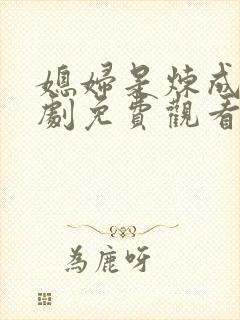 媳婦是煉成
劇免費觀看
為鹿呀